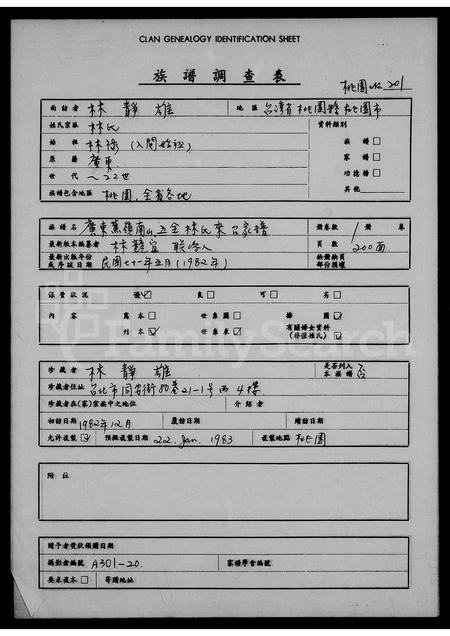 CLAN GENEALOGY IDENTIFICATION SHEET
族譜調查表
桃園 No. 201
面訪者 林 靜 雄 地區 台灣省桃園縣桃園市
姓氏宗派 林氏 資料類別
始祖 林祿 (入閩始祖) 族譜□
原籍 廣東 家譜□
世代 ～22世 功德榜□
族譜包含地區 桃園,全省各地 其他
族譜名 廣東蕉嶺南山五全林氏來台家譜 冊卷數 1 冊卷
最新版本編纂者 林 宜 聯絡人 頁數 200面
最新出版年份或序跋日期 民國七十一年五月(1982年) 缺冊缺頁部份損壞
保管狀況 優☑ 良□ 可□ 劣□
內容 寫本□ 世系圖□ 插圖☑
刊本☑ 世系表☑ 有關婦女資料(非僅姓氏)☑
珍藏者 林 靜 雄 是否列入本族譜 否
珍藏者住址 台北市同安街80巷21-1號西4樓
珍藏者在(家)宗族中之地位 介紹者
初訪日期 1982年12月 複訪日期 續訪日期
允許複製☑ 預擬複製日期 22. Jan. 1983 複製地點 桃園
附註
贈予者獎狀頒贈日期
攝影者編號 A301-20. 家譜學會編號
要求複本□ 寄贈地址
FamilySearch